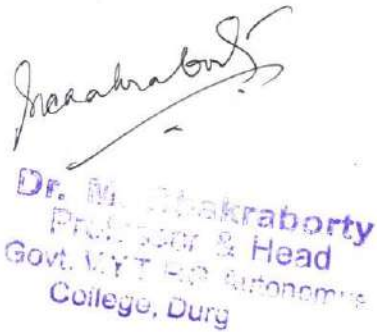 Dr. M. Chakraborty
Professor & Head
Govt. V.Y.T PG Autonomous
College, Durg